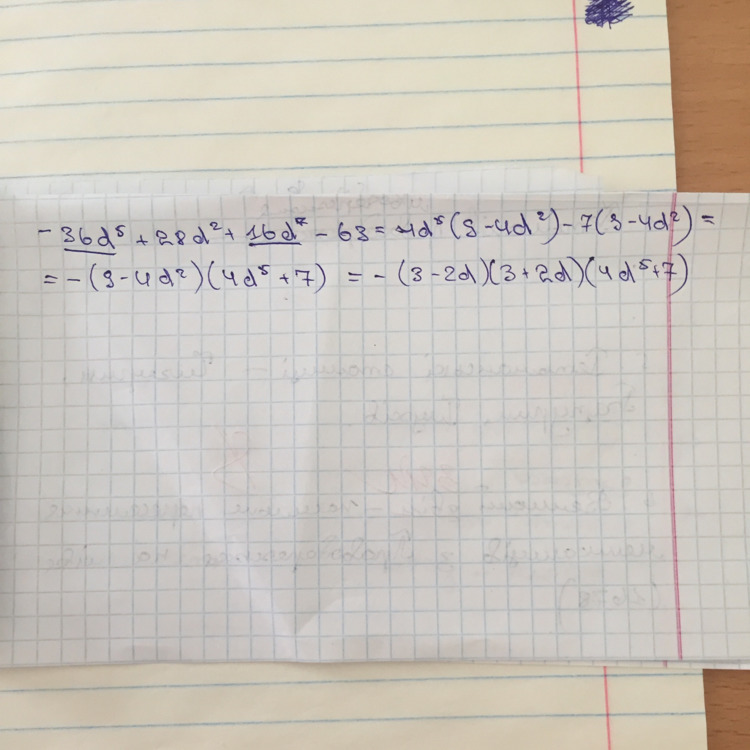 -36d⁵ + 28d² + 16d⁷ - 63 = -4d⁵(9-4d²)-7(9-4d²) =
= -(9-4d²)(4d⁵+7) = -(3-2d)(3+2d)(4d⁵+7)